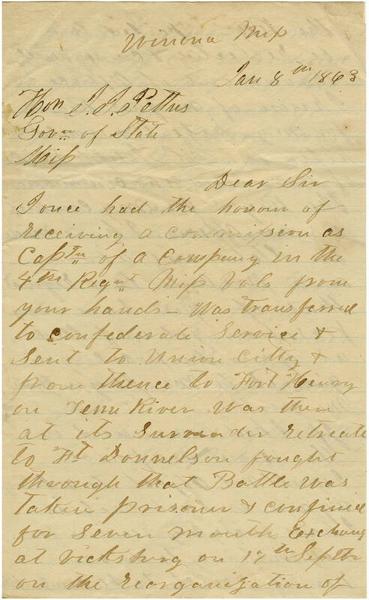 Winona Miss
Jan 8th 1863
Hon J. J. Pettus
Govr of State
Miss
Dear Sir
I once had the honour of
receiving a commission as
Captn of a company in the
4th Regmt Miss Vols from
your hands - Was transferred
to confederate Service &
Sent to Union Citty &
from thence to Fort Henry
on Tenn River was then
at its Surrender retreated
to Ft Donnelson fought
through that Battle was
taken prisoner & confined
for Seven month Exchang
at Vicksburg on 17th Septbr
on the reorganization of